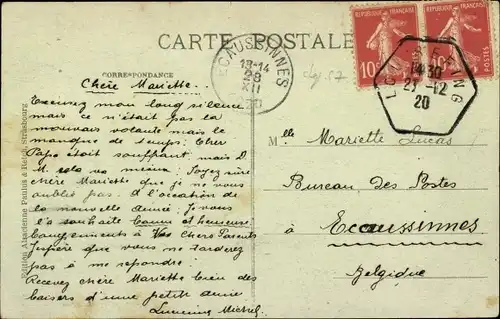 CARTE POSTALE
CORRESPONDANCE
Chère Mariette.
Excusez mon long silence
mais ce n'était pas la
mauvais volonte mais le
manque de temps. Cher
Papa était souffrant mais D.
M. cela va mieux. Soyez sûre
chère Mariette que je ne vous
oublie pas. à l'occasion de
la nouvelle année je vous
la souhaite Bonne et heureuse
Compliments à Vos Chers Parents
J'espère que vous ne tarderez
pas à me repondre.
Recevez chère Mariette bien des
baisers d'une petite amie
Michel
Edition Alsacienne Strasbourg
ECAUSSINNES
13-14
28
XII
20
REPUBLIQUE FRANÇAISE
10
REPUBLIQUE FRANÇAISE
10
1430
27-12
20
Mlle Mariette Lucas
Bureau des Postes
à Ecaussinnes
Belgique